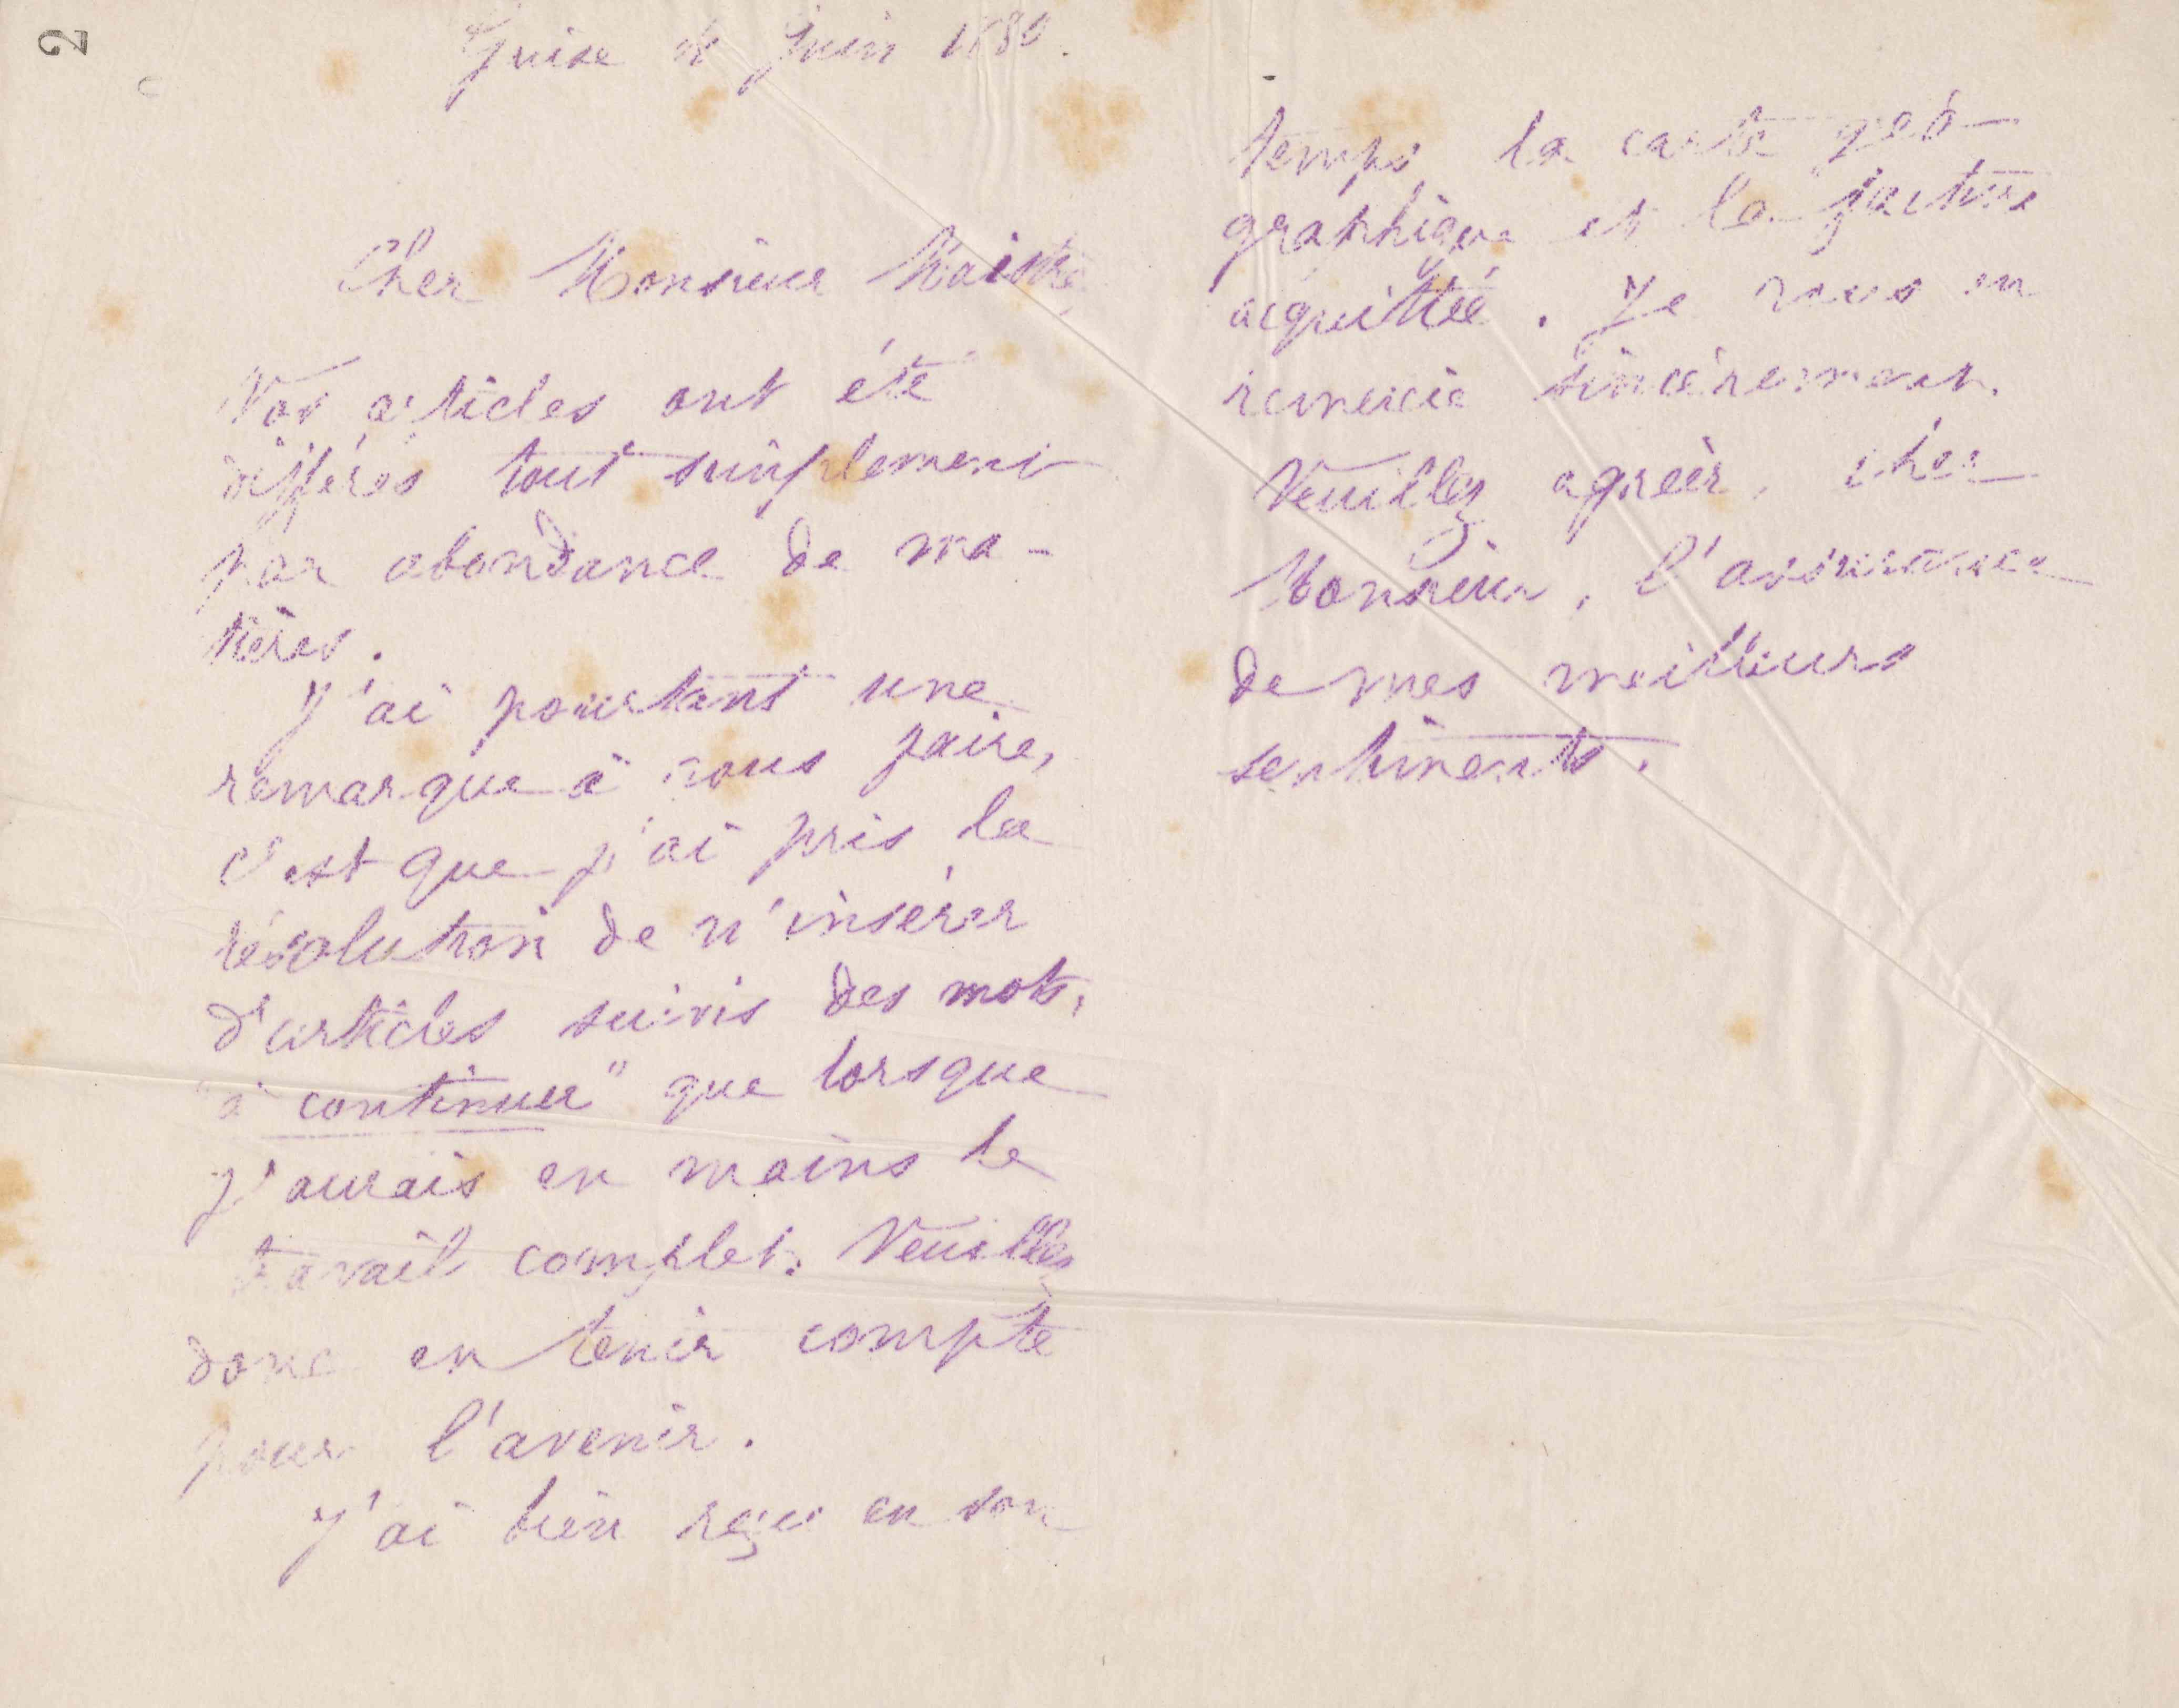 2
Guise Juin 1880.
Cher Monsieur Maistre,
Vos articles ont été
différés tout simplement
par abondance de ma-
tières.
J'ai pourtant une
remarque à vous faire,
c'est que j'ai pris la
résolution de n'insérer
d'articles suivis des mots,
"à continuer" que lorsque
j'aurais en mains le
travail complet. Veuillez
donc en tenir compte
pour l'avenir.
J'ai bien reçu en son
temps la carte géo-
graphique et la facture
acquittée. Je vous en
remercie sincèrement.
Veuillez agréer, cher
Monsieur, l'assurance
de mes meilleurs
sentiments.